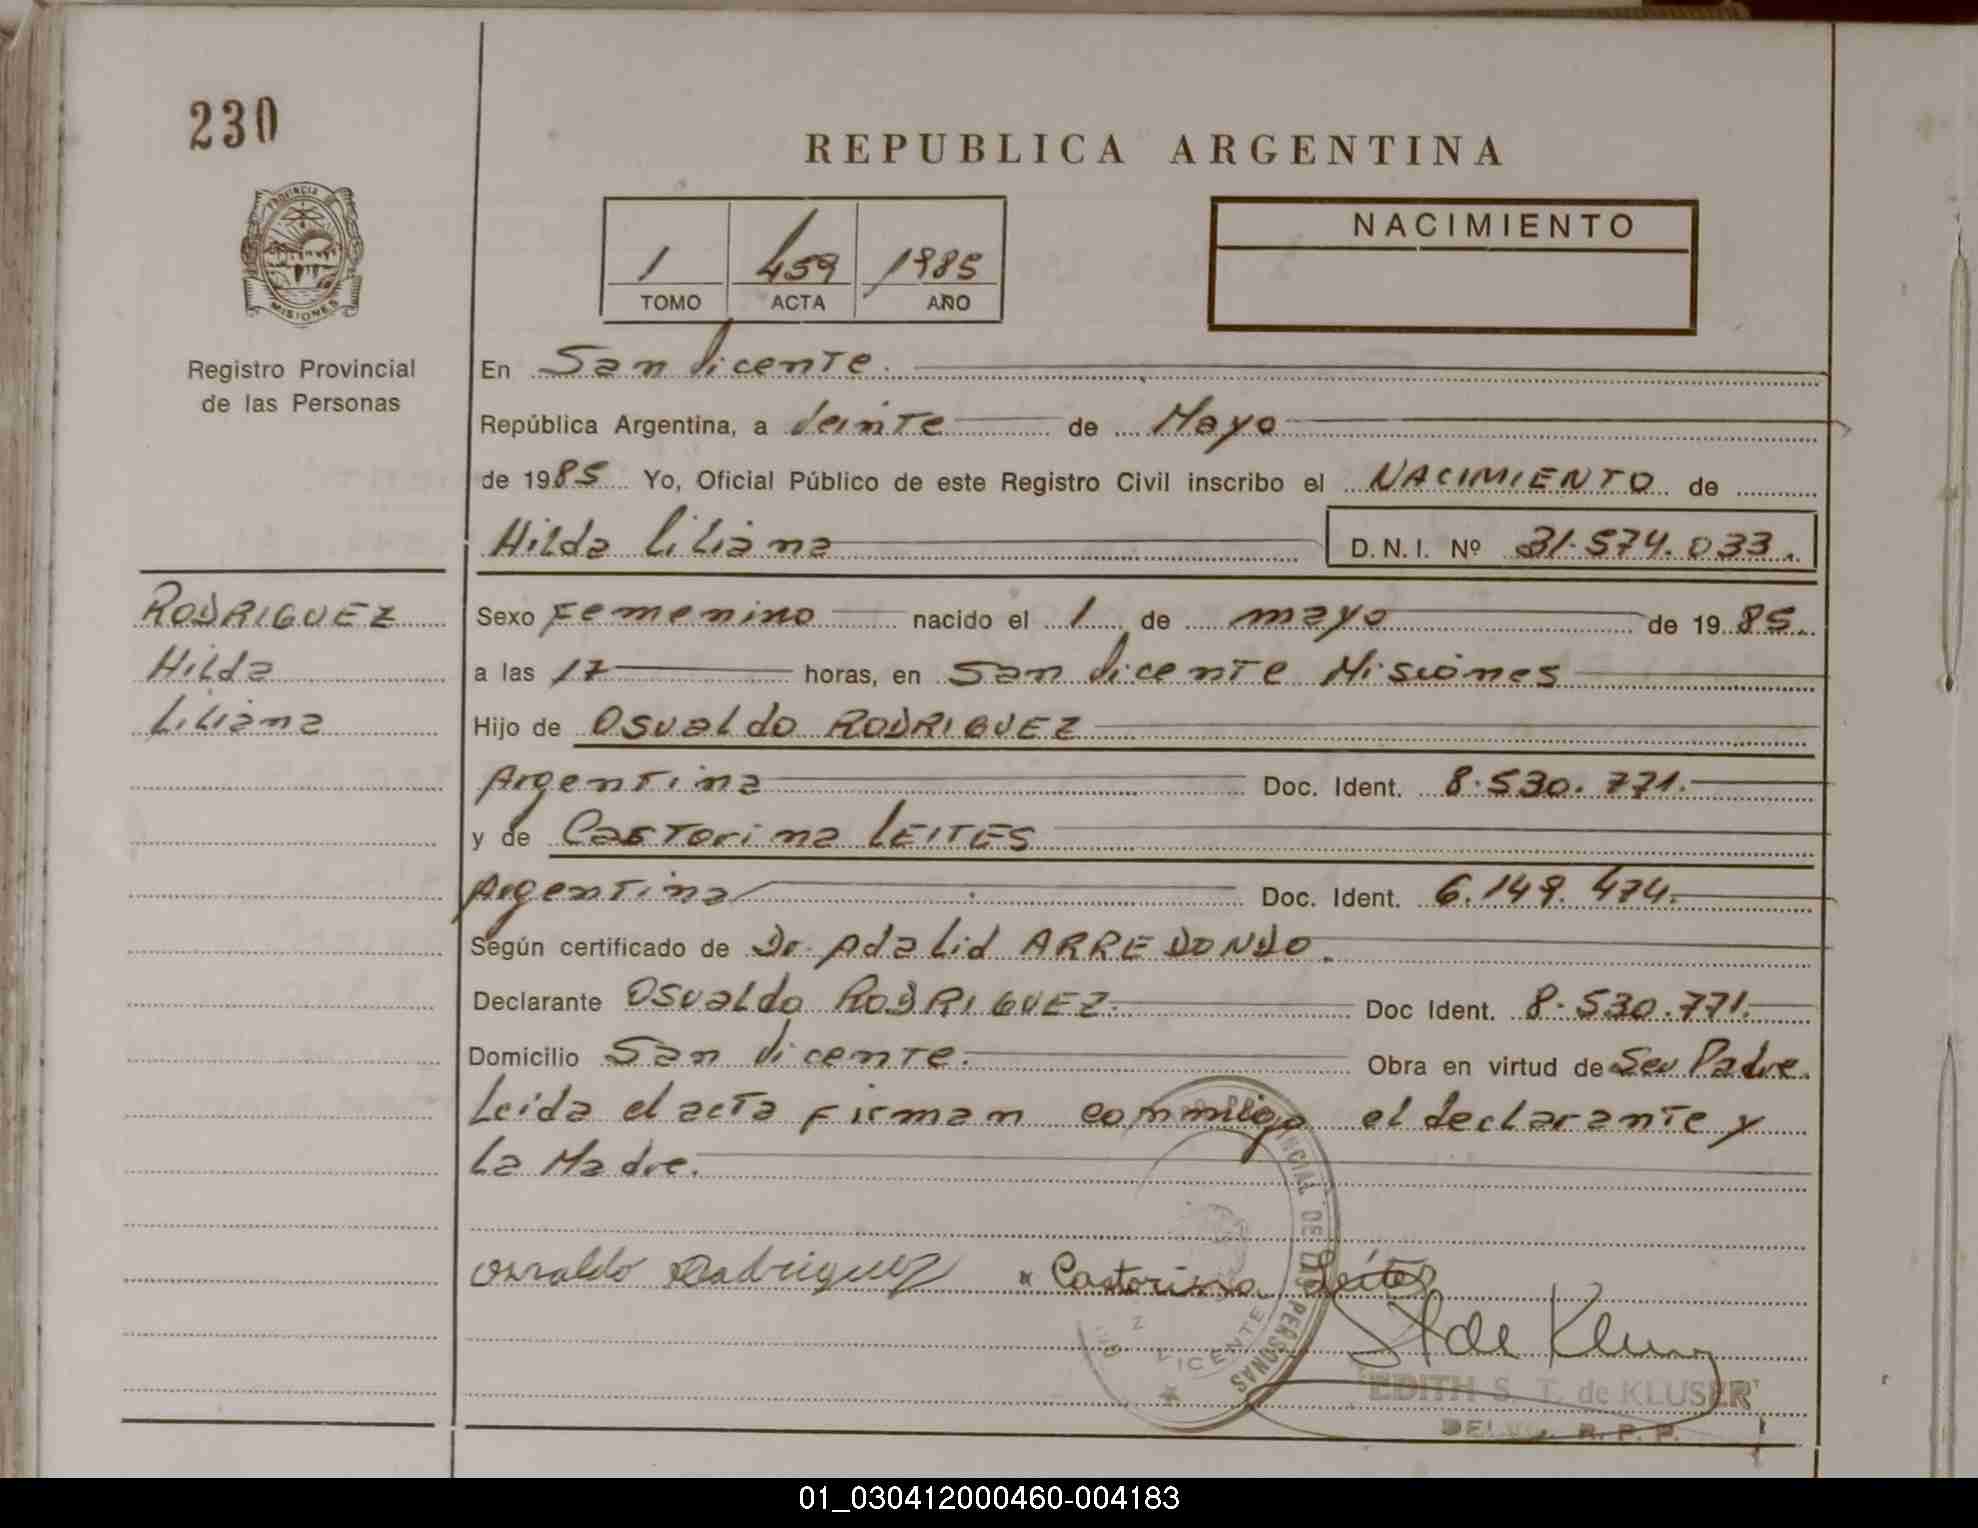 230
REPUBLICA ARGENTINA
PROVINCIA DE
MISIONES
Registro Provincial
de las Personas
1 459 1985
TOMO ACTA AÑO
NACIMIENTO
En San Vicente.
República Argentina, a Veinte de Mayo
de 1985 Yo, Oficial Público de este Registro Civil inscribo el NACIMIENTO de
Hilda Liliana D.N.I. Nº 31.574.033.
RODRIGUEZ
Hilda
Liliana
Sexo Femenino nacido el 1 de mayo de 1985.
a las 17 horas, en San Vicente Misiones
Hijo de Osvaldo RODRIGUEZ
Argentina Doc. Ident. 8.530.771.
y de Castorina LEITES
Argentina Doc. Ident. 6.149.474.
Según certificado de Dr. Adalid ARREDONDO.
Declarante Osvaldo RODRIGUEZ. Doc Ident. 8.530.771.
Domicilio San Vicente. Obra en virtud de Ser Padre.
Leida el acta firman conmigo el declarante y
La Madre.
Osvaldo Rodriguez Castorina Leites
PROVINCIAL DE LAS PERSONAS
VICENTE
EDITH S. T. de KLUSER
R. P. P.
01_030412000460-004183